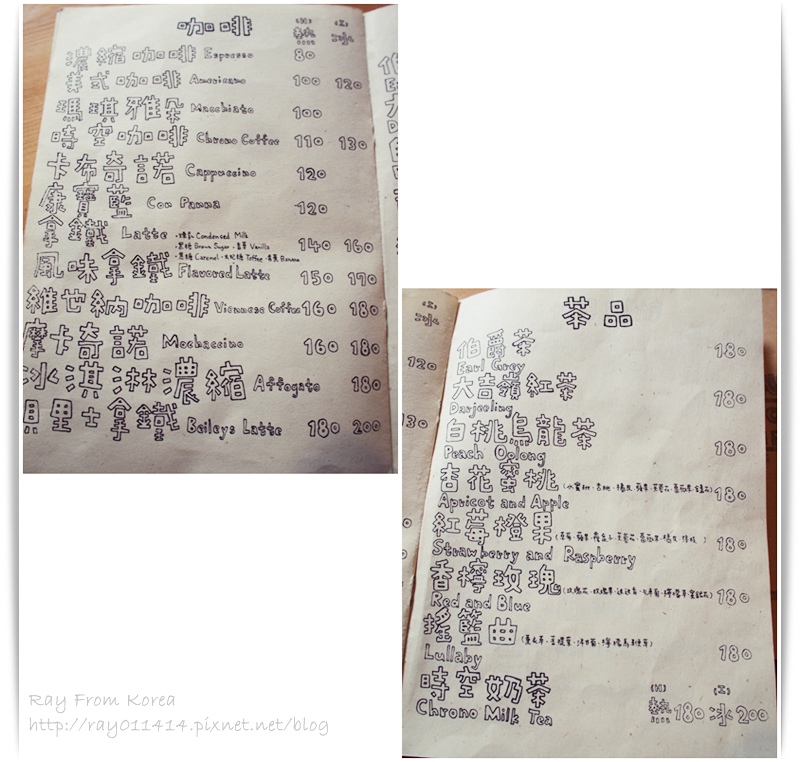 咖啡 (H) 熱 (I) 冰
濃縮咖啡 Espresso 80
美式咖啡 Americano 100 120
瑪琪雅朵 Macchiato 100
時空咖啡 Chrono Coffee 110 130
卡布奇諾 Cappuccino 120
康寶藍 Con Panna 120
拿鐵 Latte 140 160
・煉乳 Condensed Milk
・黑糖 Brown Sugar ・香草 Vanilla
・焦糖 Caramel ・太妃糖 Toffee ・香蕉 Banana
風味拿鐵 Flavored Latte 150 170
維也納咖啡 Viennese Coffee 160 180
摩卡奇諾 Mochaccino 160 180
冰淇淋濃縮 Affogato 180
貝里士拿鐵 Baileys Latte 180 200
(I)
冰
120
130
茶品
伯爵茶 180
Earl Grey
大吉嶺紅茶 180
Darjeeling
白桃烏龍茶 180
Peach Oolong
杏花蜜桃 180
Apricot and Apple
紅莓橙果 180
Strawberry and Raspberry
香檸玫瑰 180
Red and Blue
搖籃曲 180
Lullaby
時空奶茶 (H) 熱 180 (I) 冰 200
Chrono Milk Tea
Ray From Korea
http://ray011414.pixnet.net/blog